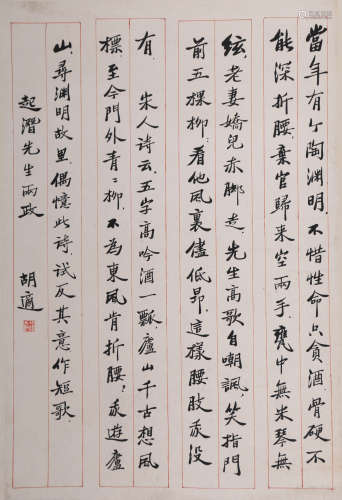 當年有个陶淵明,不惜性命只貪酒,骨硬不
能深折腰,棄官歸来空兩手,甕中無米琴無
絃,老妻嬌兒赤脚走。先生高歌自嘲諷,笑指門
前五棵柳,看他風裏儘低昂,這樣腰肢我沒
有。 宋人詩云,五字高吟酒一瓢,廬山千古想風
標,至今門外青々柳,不為東風肯折腰,我遊廬
山,尋淵明故里,偶憶此詩,試反其意作短歌。
起潛先生兩政 胡適